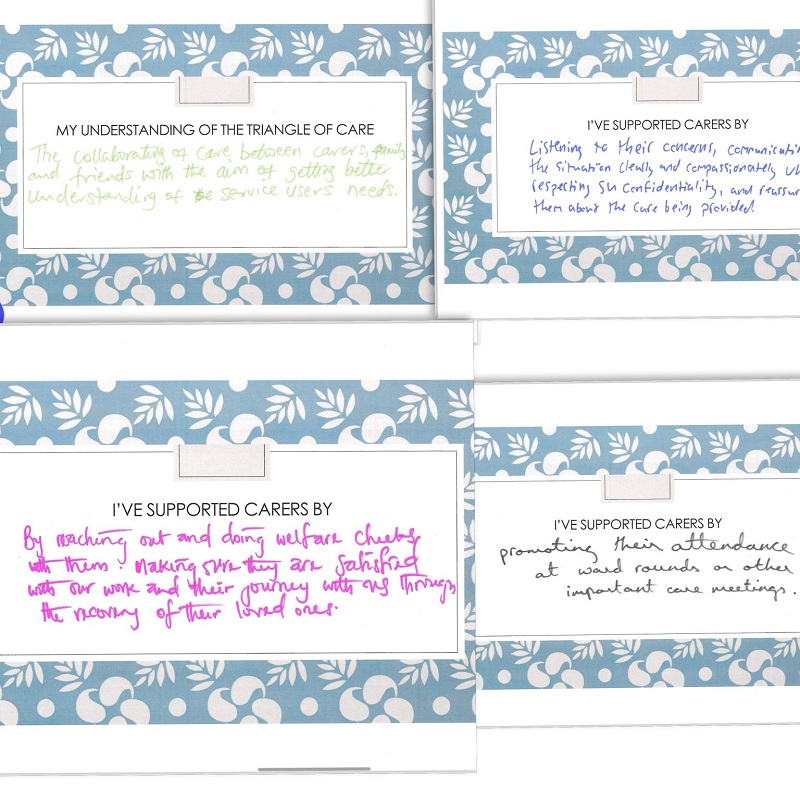 MY UNDERSTANDING OF THE TRIANGLE OF CARE
The collaborating of care between carers, family
and friends with the aim of getting better
understanding of the service users needs.
I'VE SUPPORTED CARERS BY
Listening to their concerns,
the situation clearly and compassionately
respecting SU confidentiality, and
them about the care being provided
I'VE SUPPORTED CARERS BY
By reaching out and doing welfare checks
with them. Making sure they are satisfied
with our work and their journey with us through
the recovery of their loved ones.
I'VE SUPPORTED CARERS BY
promoting their attendance
at ward rounds or other
important care meetings.